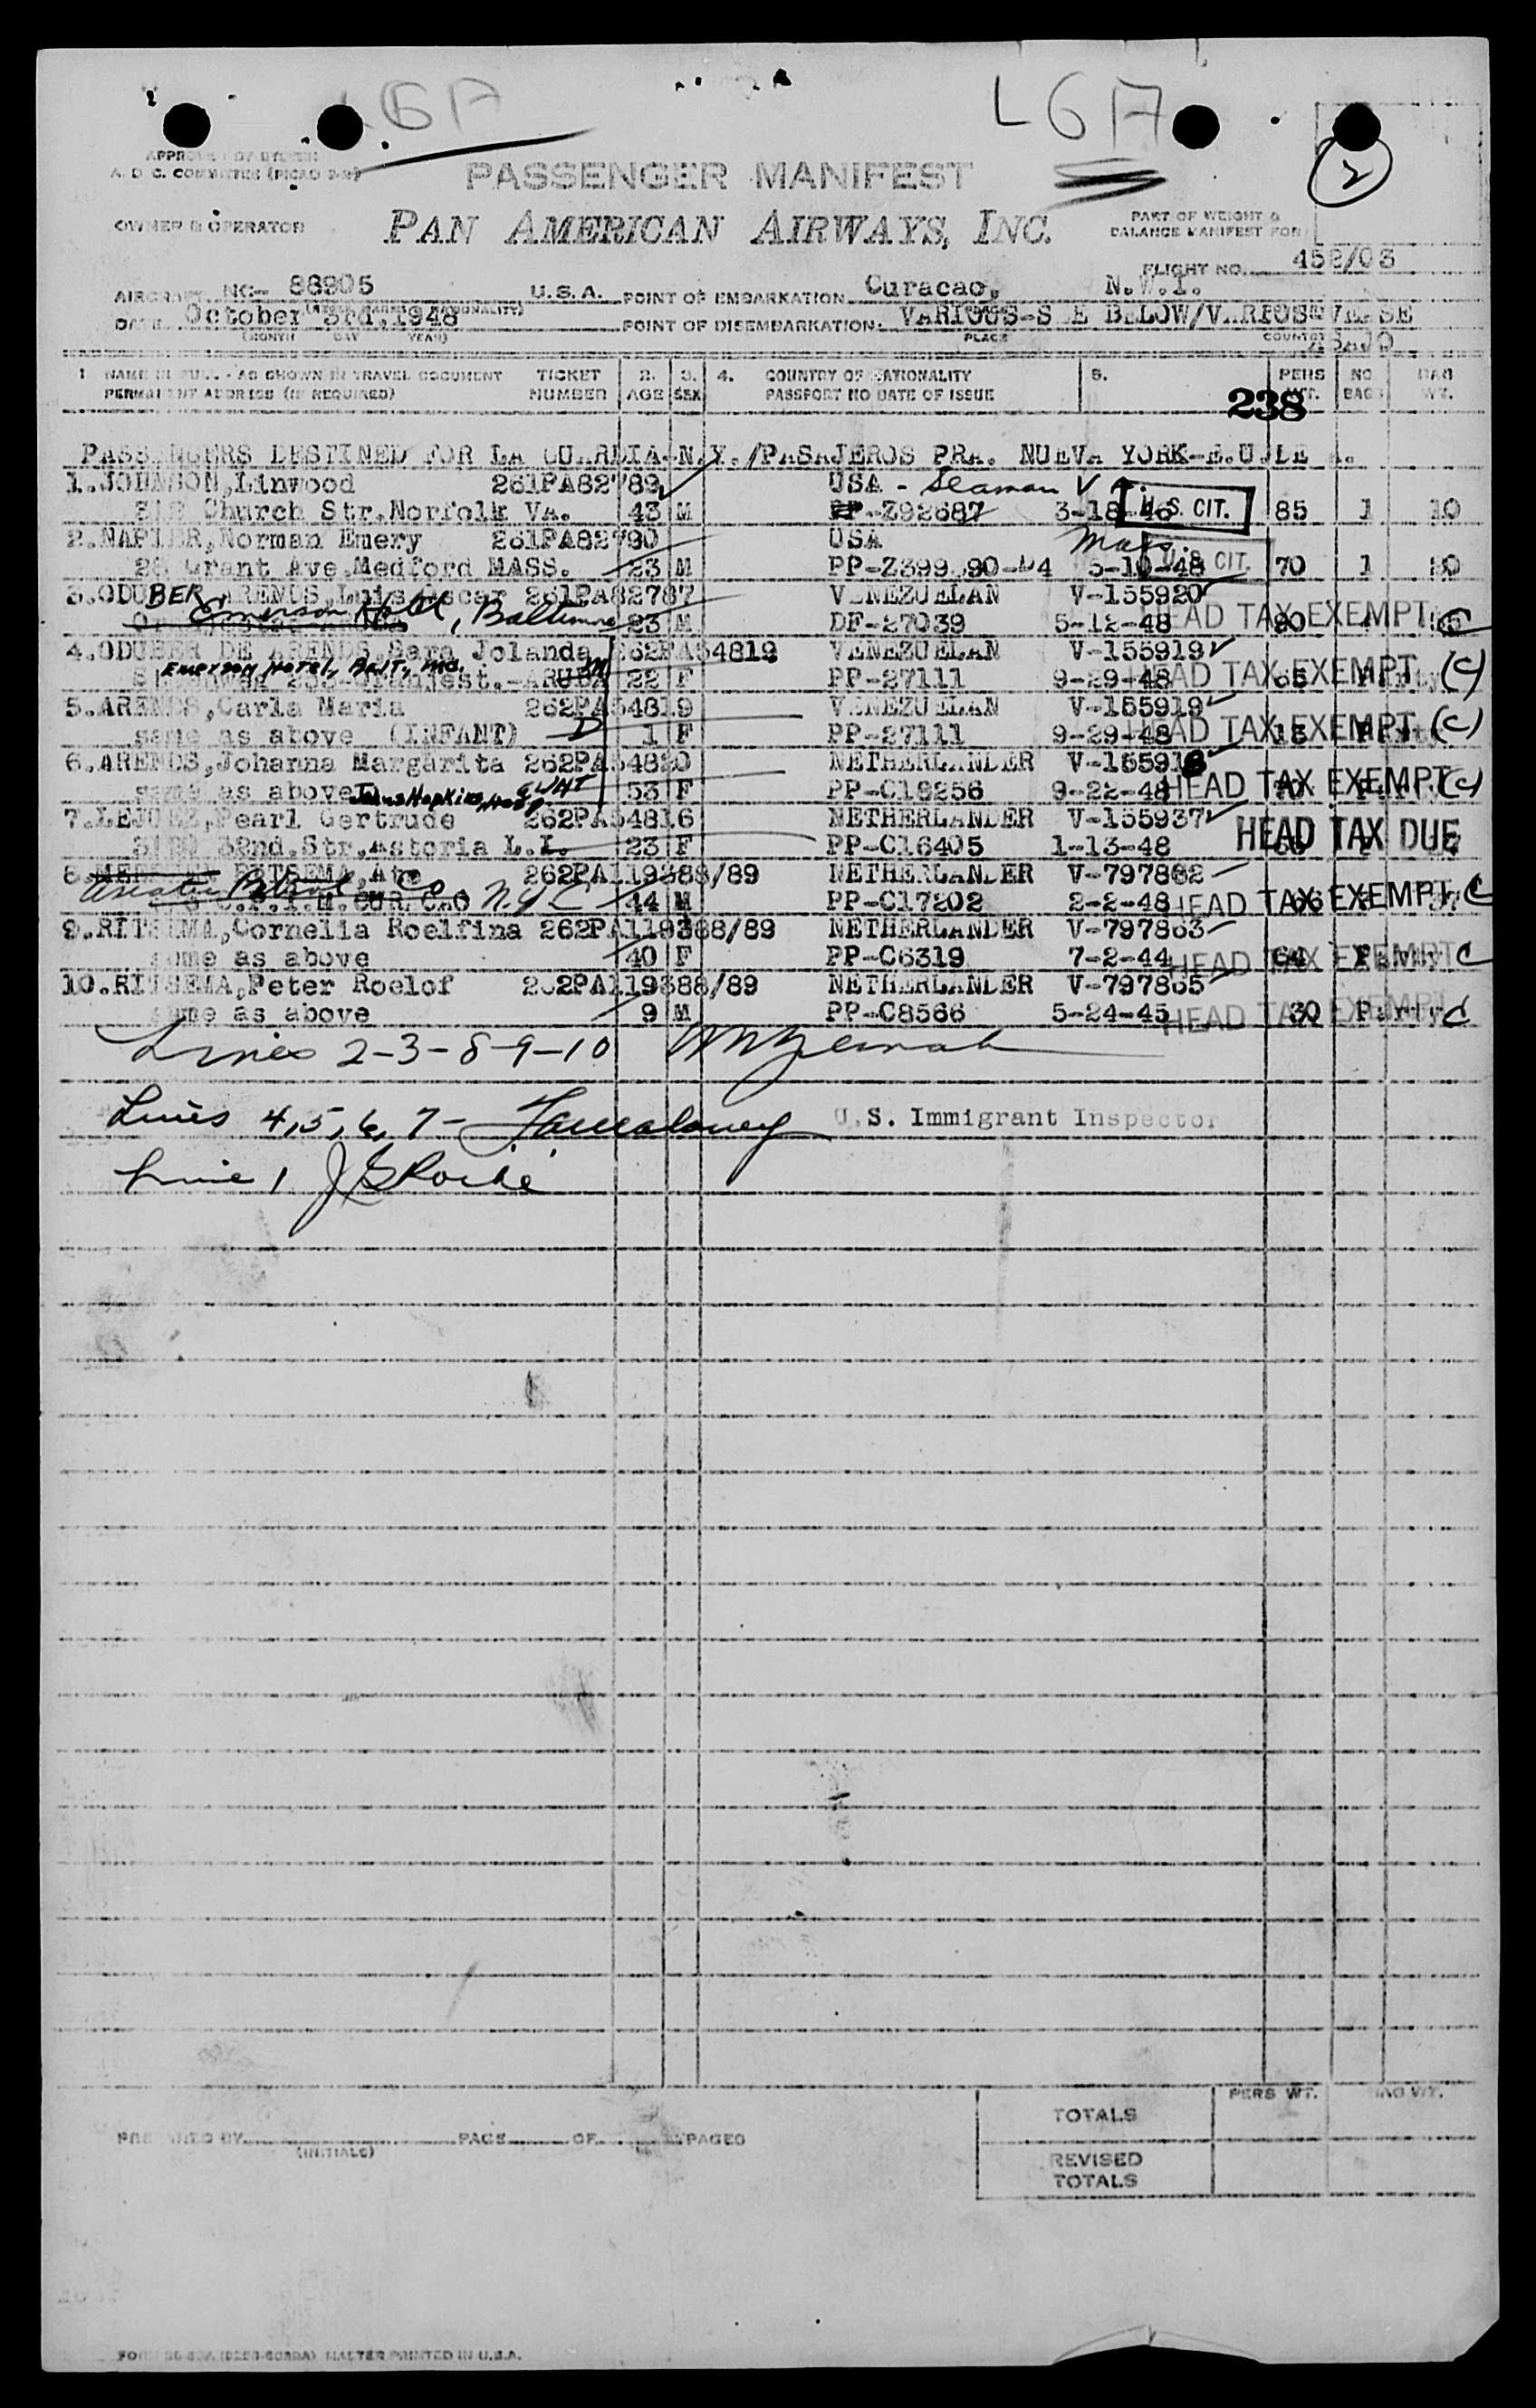 L G A
L G A
2
A. D. C. COMMITTEE (PICAO
PASSENGER MANIFEST
OWNER & OPERATOR
PAN AMERICAN AIRWAYS, INC.
PART OF WEIGHT &
BALANCE MANIFEST FOR
FLIGHT NO. 452/03
AIRCRAFT NC- 88905 U.S.A. POINT OF EMBARKATION Curacao, N.W.I.
DATE October 3rd,1948 POINT OF DISEMBARKATION: VARIOUS-S E BELOW/VARIOS
(MONTH DAY YEAR) PLACE COUNTRY
1 NAME IN FULL - AS SHOWN IN TRAVEL DOCUMENT TICKET 2. 3. 4. COUNTRY OF NATIONALITY 5. PERS NO BAG
PERMANENT ADDRESS (IF REQUIRED) NUMBER AGE SEX PASSPORT NO DATE OF ISSUE WT. BAGS WT.
238
PASSENGERS DESTINED FOR LA GUARDIA-N.Y./PASAJEROS PRA. NUEVA YORK-E.U.DE A.
1.JOHNSON,Linwood 261PA82789 USA - Seaman
Church Str.Norfolk VA. 43 M Z92687 3-18-46 U.S. CIT. 85 1 10
2.NAPIER,Norman Emery 261PA82790 USA
Grant Ave.Medford MASS. 23 M PP-Z399 90- 4 5-10-48 U.S. CIT. 70 1
3.ODUBER ARENDS,Luis Oscar 261PA82787 VENEZUELAN V-155920
Emerson Hotel, Baltimore 23 M DF-27039 5-12-48 HEAD TAX EXEMPT C
4.ODUBER DE ARENDS,Sara Jolanda 262PA54819 VENEZUELAN V-155919
Emerson Hotel, Balt., Md. M 22 F PP-27111 9-29-48 HEAD TAX EXEMPT (C)
5.ARENDS,Carla Maria 262PA54819 VENEZUELAN V-155919
same as above (INFANT) D 1 F PP-27111 9-29-48 HEAD TAX EXEMPT (C)
6.ARENDS,Johanna Margarita 262PA54820 NETHERLANDER V-155918
same as above Johns Hopkins, Hosp. 53 F PP-C18256 9-22-48 HEAD TAX EXEMPT (C)
7.LEJUEZ,Pearl Gertrude 262PA54816 NETHERLANDER V-155937
32nd.Str.Astoria L.I. 23 F PP-C16405 1-13-48 HEAD TAX DUE
8. RITSEMA,Abe 262PA119388/89 NETHERLANDER V-797862
N.Y.C 44 M PP-C17202 2-2-48 HEAD TAX EXEMPT C
9.RITSEMA,Cornelia Roelfina 262PA119388/89 NETHERLANDER V-797863
same as above 40 F PP-C6319 7-2-44 HEAD TAX EXEMPT 64 C
10.RITSEMA,Peter Roelof 262PA119388/89 NETHERLANDER V-797865
same as above 9 M PP-C8566 5-24-45 HEAD TAX EXEMPT 30 Party C
Lines 2-3-8-9-10
Lines 4,5,6,7- U.S. Immigrant Inspector
Line 1
PERS WT. BAG WT.
TOTALS
PREPARED BY (INITIALS) PAGE OF PAGES
REVISED
TOTALS
PRINTED IN U.S.A.